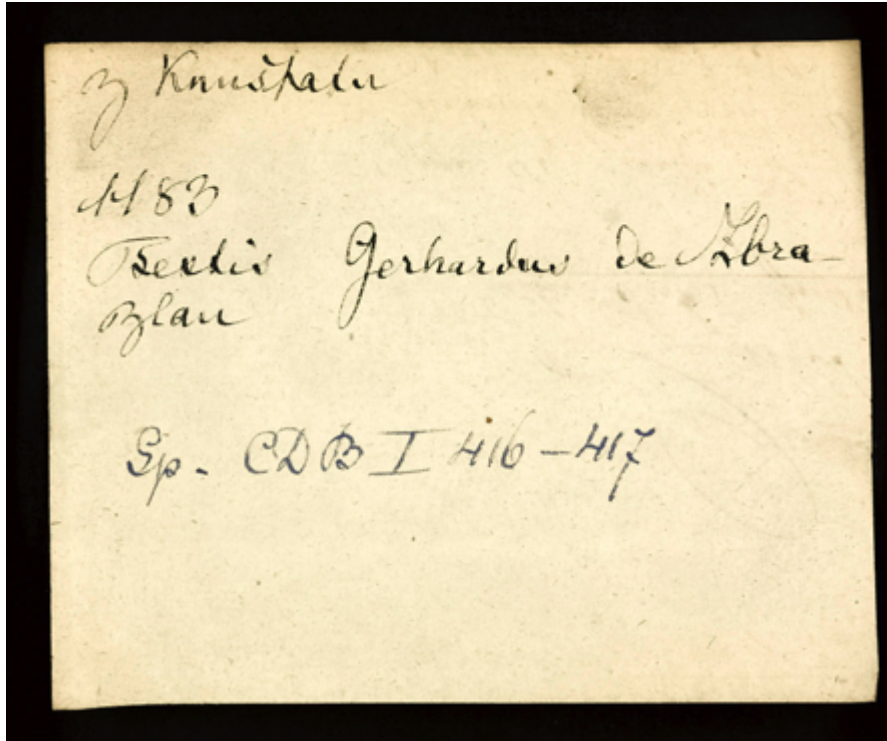 z Kunštatu
1183
Testis Gerhardus de Zbra-
zlau
Sp. CDB I 416-417